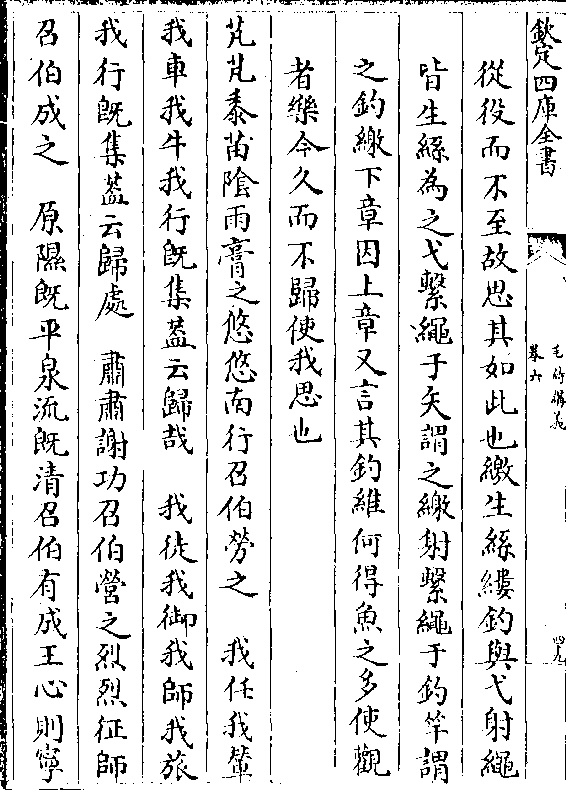 欽定四庫全書
毛詩講義
卷六
四九
從役而不至故思其如此也繳生絲縷釣與弋射繩
皆生絲為之弋繫繩于矢謂之繳射繫繩于釣竿謂
之釣繳下章因上章又言其釣維何得魚之多使觀
者樂今久而不歸使我思也
芃芃黍苗陰雨膏之悠悠南行召伯勞之　我任我輦
我車我牛我行既集蓋云歸哉　我徒我御我師我旅
我行既集葢云歸處　肅肅謝功召伯營之烈烈征師
召伯成之　原隰既平泉流既清召伯有成王心則寧